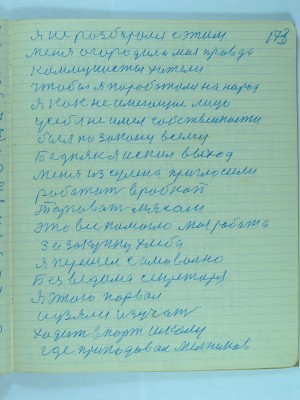 173
Я не разбирался с этим
меня огородила моя правда
коммунисты хотели
чтобы я поработал на народ
Я как не имеющие лицо
у себя не имел собственности
был по закону всему
Бедняк я искал выход
меня из сулина пригласили
работать в рабкоп
торговать мясом
это все помогло моя работа
За закупку хлеба
Я перешел самовольно
Без ведома секретаря
Я этого порвал
и взяли изучат
ходить в порт школу
где преподавал Мельников